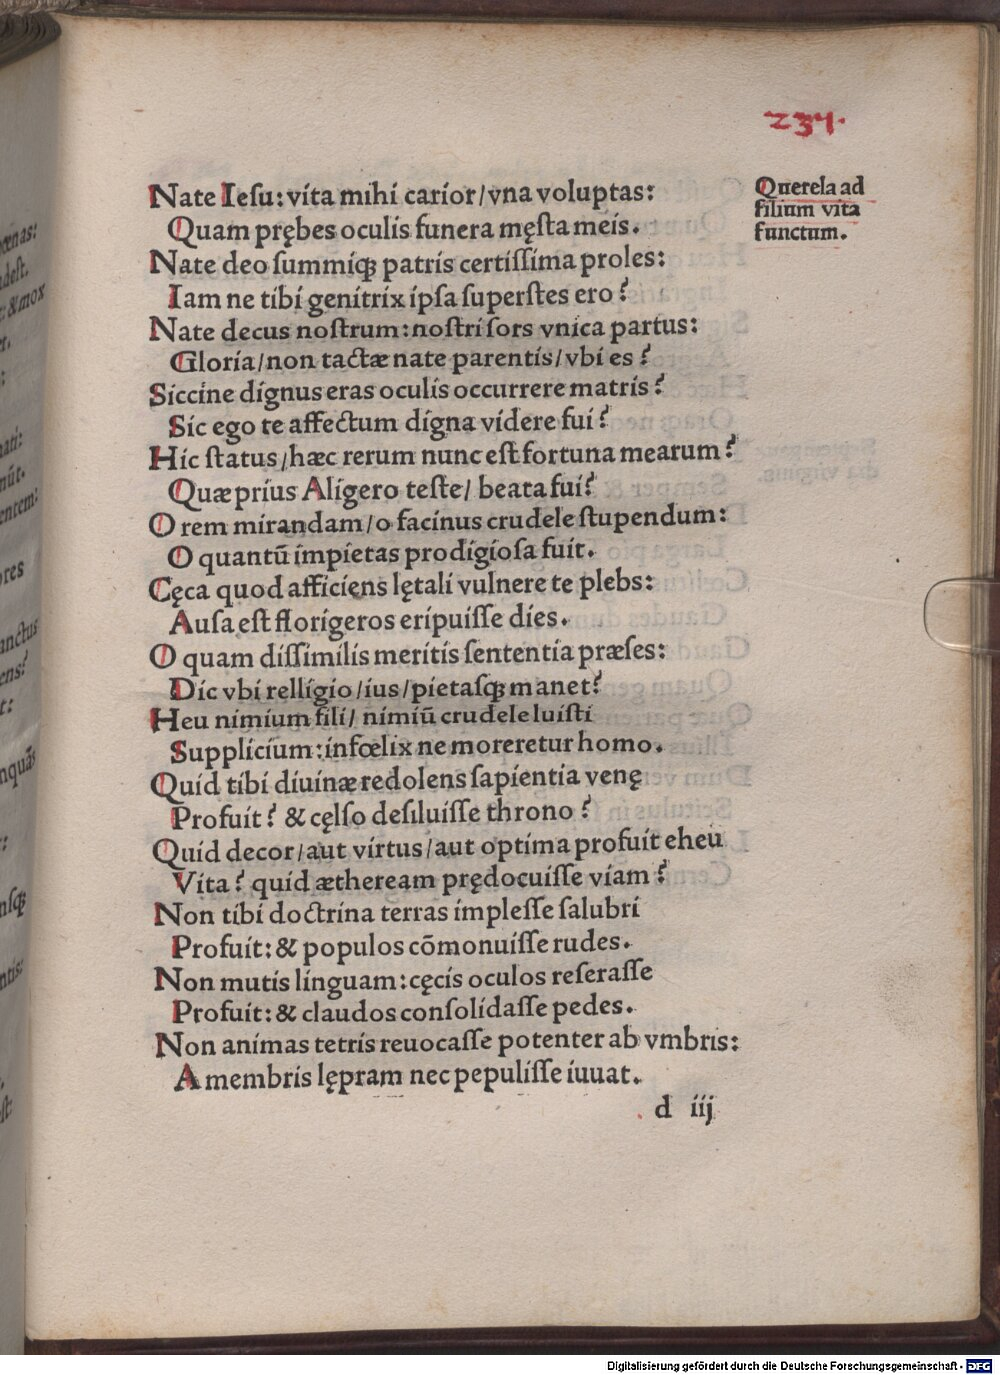 234.
Nate Iesu: vita mihi carior/ vna voluptas:
Quam prębes oculis funera męsta meis.
Nate deo summiqꝫ patris certissima proles:
Iam ne tibi genitrix ipsa superstes ero?
Nate decus nostrum: nostri sors vnica partus:
Gloria/ non tactæ nate parentis/ vbi es?
Siccine dignus eras oculis occurrere matris?
Sic ego te affectum digna videre fui?
Hic status/ hæc rerum nunc est fortuna mearum?
Quæ prius Aligero teste/ beata fui?
O rem mirandam/ o facinus crudele stupendum:
O quantū impietas prodigiosa fuit.
Cęca quod afficiens lętali vulnere te plebs:
Ausa est florigeros eripuisse dies.
O quam dissimilis meritis sententia præses:
Dic vbi relligio/ ius/ pietasqꝫ manet?
Heu nimium fili/ nimiū crudele luisti
Supplicium: infœlix ne moreretur homo.
Quid tibi diuinæ redolens sapientia venę
Profuit? & cęlso desiluisse throno?
Quid decor/ aut virtus/ aut optima profuit eheu
Vita? quid æthеream prędocuisse viam?
Non tibi doctrina terras implesse salubri
Profuit: & populos cōmonuisse rudes.
Non mutis linguam: cęcis oculos reserasse
Profuit: & claudos consolidasse pedes.
Non animas tetris reuocasse potenter ab vmbris:
A membris lępram nec pepulisse iuuat.
d iij
Querela ad
filium vita
functum.
Digitalisierung gefördert durch die Deutsche Forschungsgemeinschaft - DFG